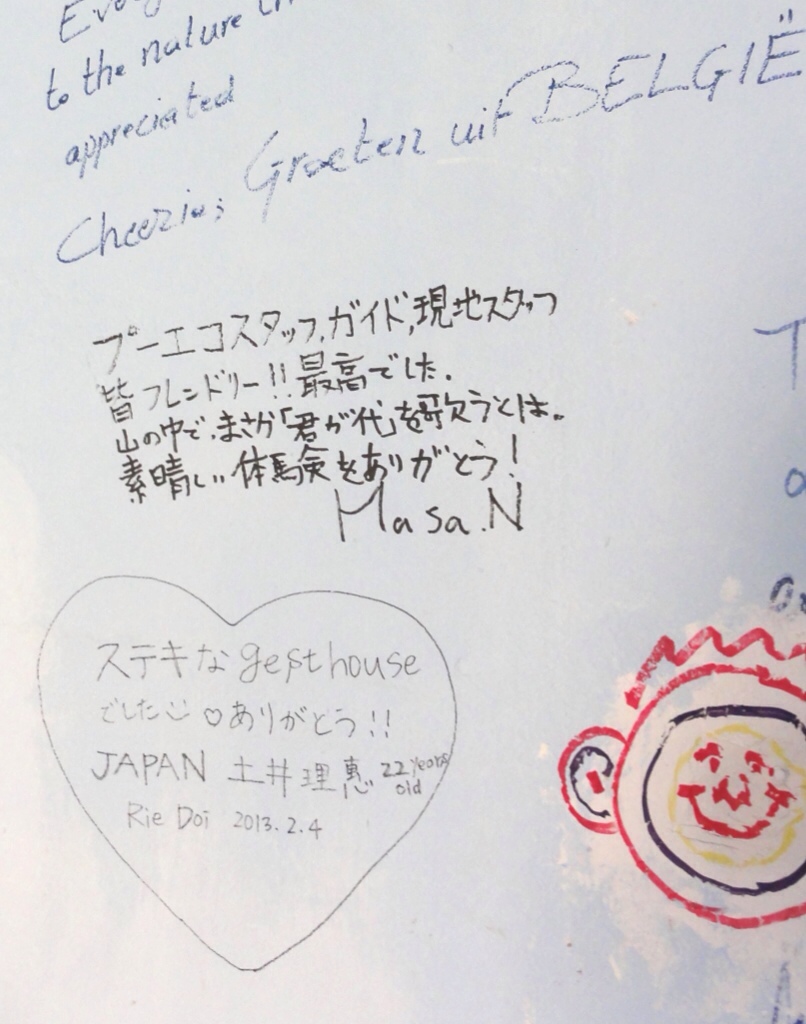 to the nature
appreciated
Cheerio; Groeten uit BELGIË
プーエコスタッフ,ガイド,現地スタッフ
皆フレンドリー!!最高でした.
山の中で,まさか「君が代」を歌うとは。
素晴しい体験をありがとう!
Masa.N
ステキな gesthouse
でした ♡ありがとう!!
JAPAN 土井理恵 22 years old
Rie Doi 2013.2.4